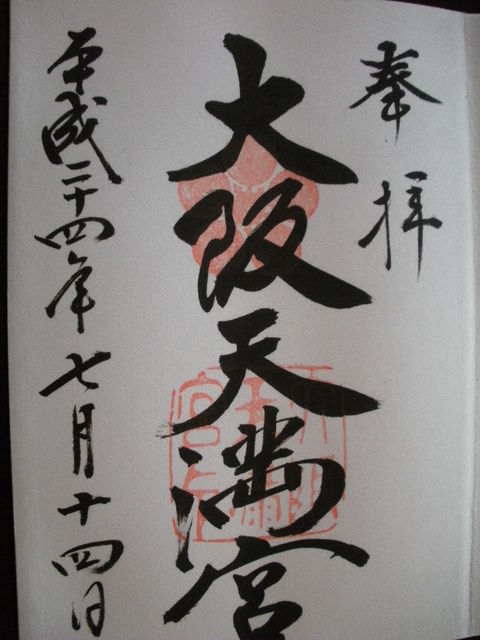 奉拝
大阪天満宮
平成二十四年七月十四日